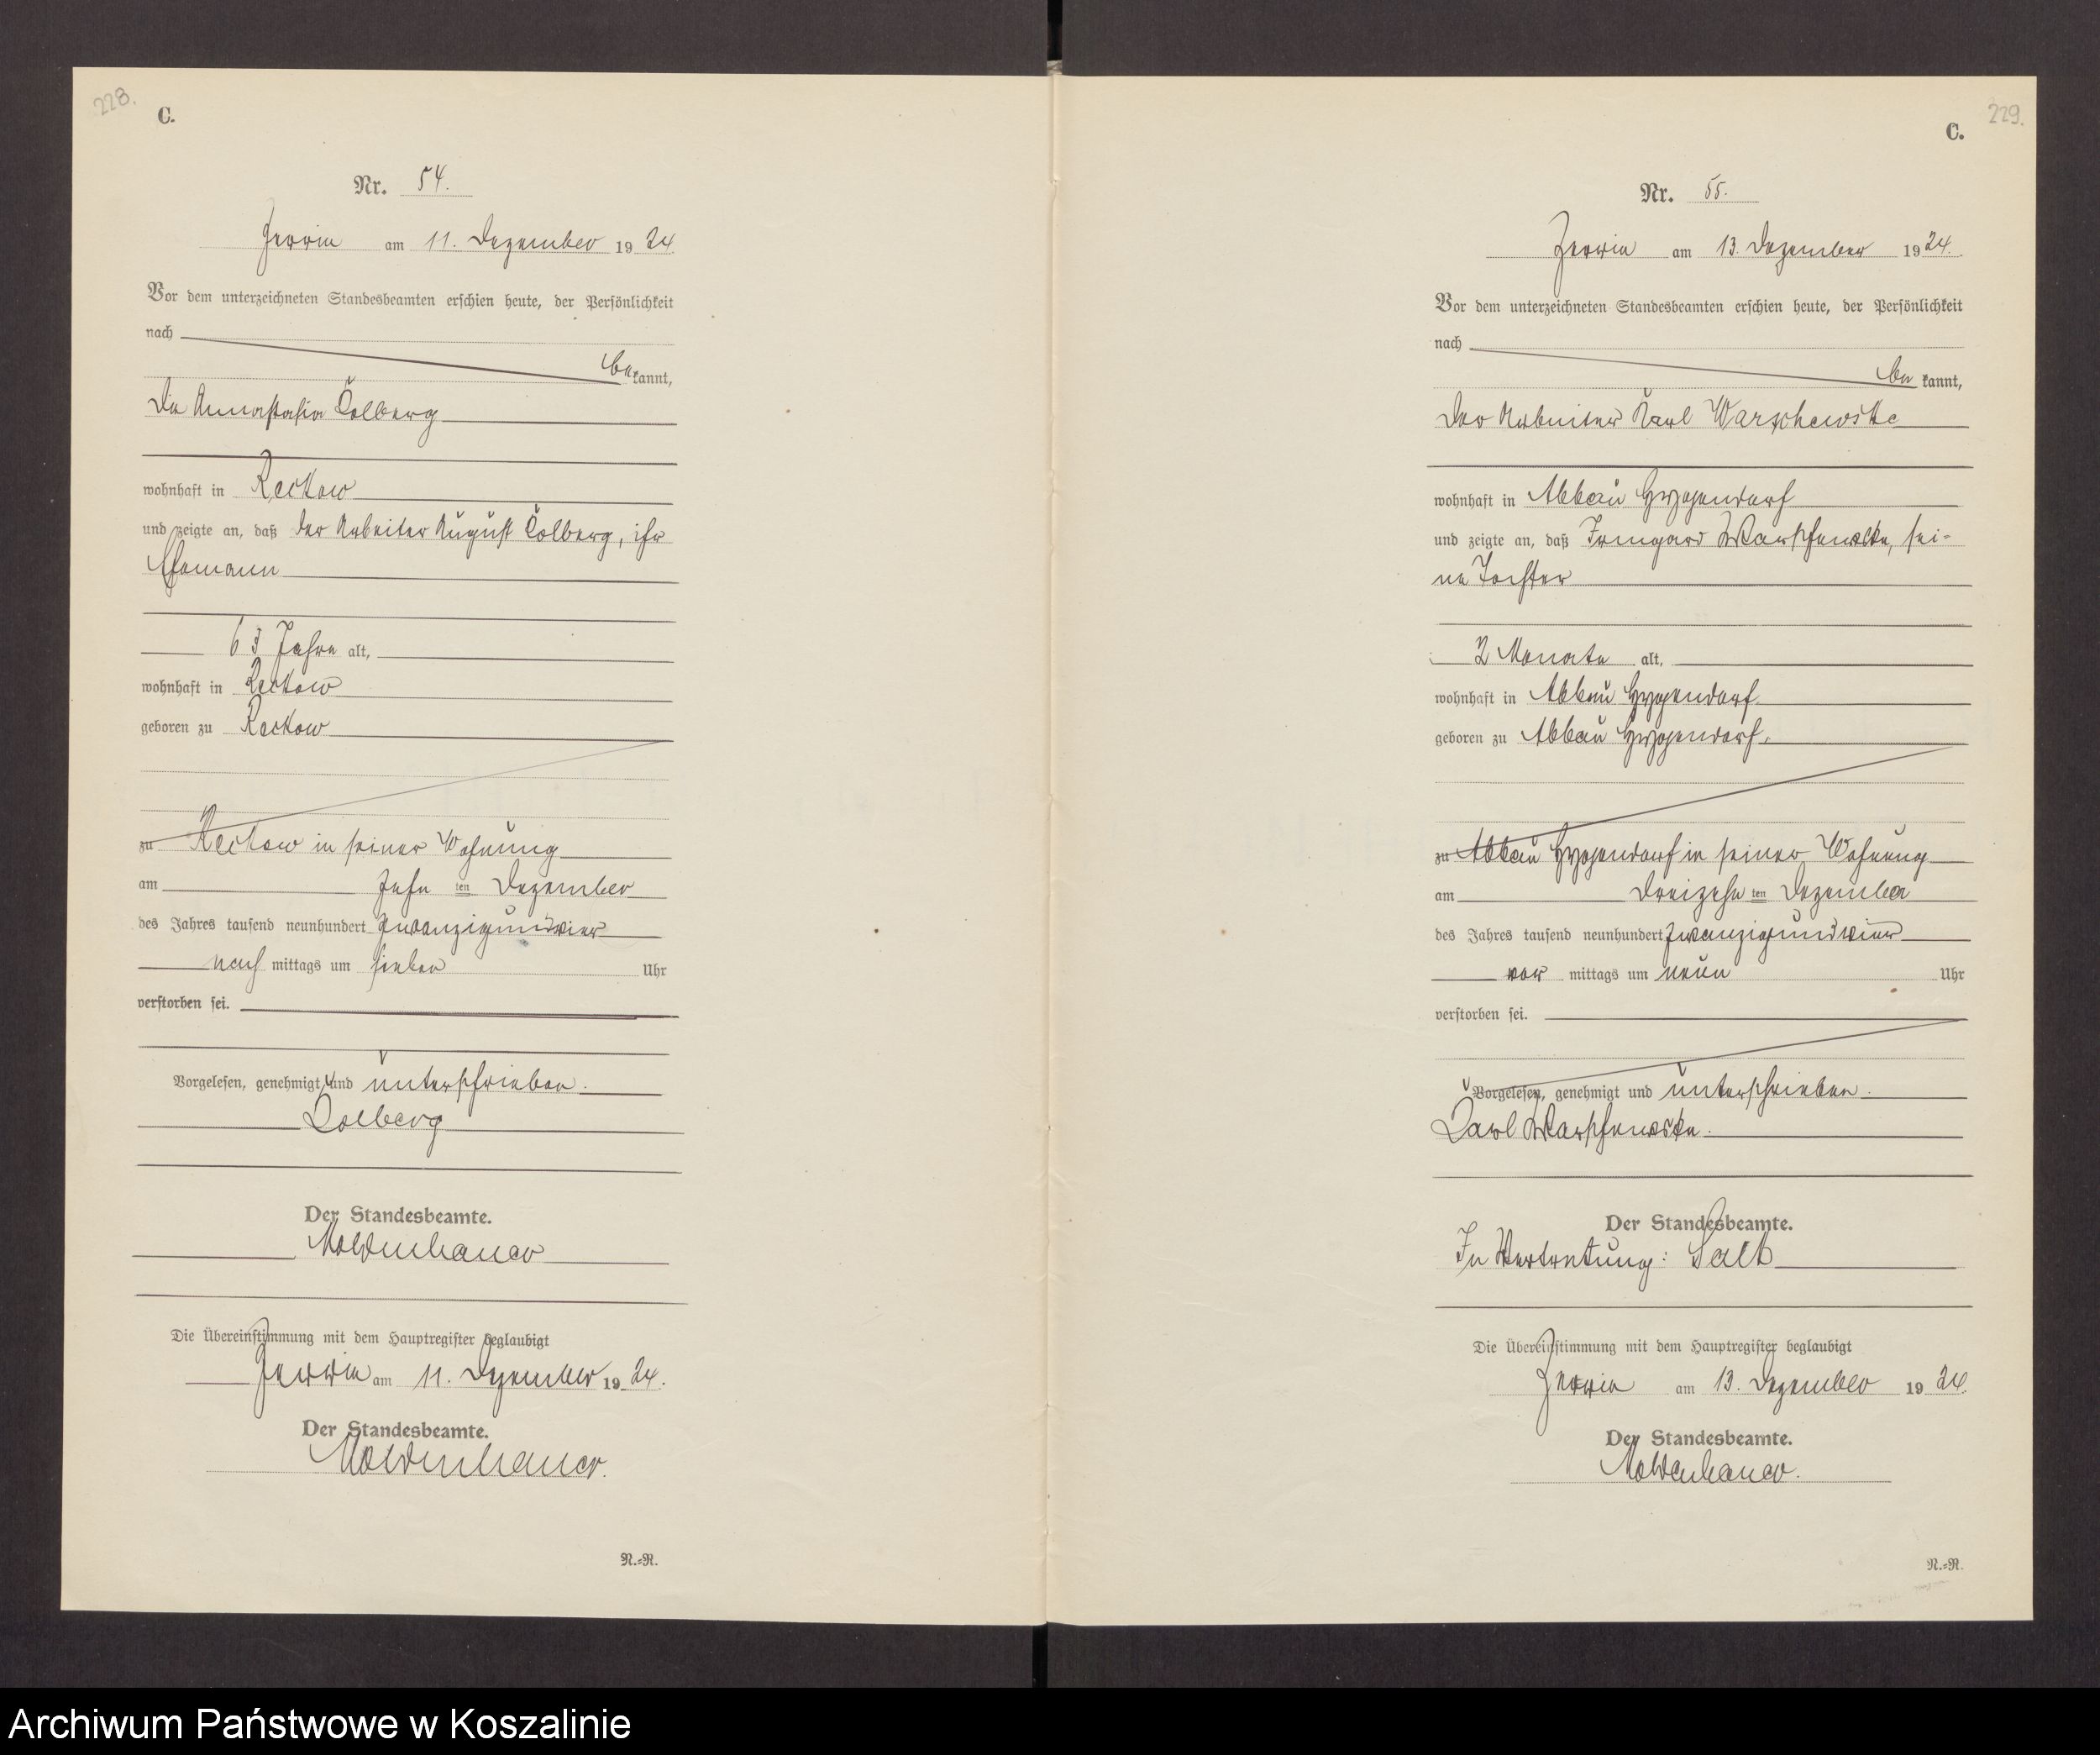 228.
C.
Nr. 54.
Zerrin am 11. Dezember 1924.
Vor dem unterzeichneten Standesbeamten erschien heute, der Persönlichkeit
nach
bekannt,
die Annastasia Kolberg
wohnhaft in Reckow
und zeigte an, daß der Arbeiter August Kolberg, ihr
Ehemann
63 Jahre alt,
wohnhaft in Reckow
geboren zu Reckow
zu Reckow in seiner Wohnung
am zehn ten Dezember
des Jahres tausend neunhundert zwanzigundvier
nach mittags um sieben Uhr
verstorben sei.
Vorgelesen, genehmigt und unterschrieben.
Kolberg
Der Standesbeamte.
Moldenhauer
Die Übereinstimmung mit dem Hauptregister beglaubigt
Zerrin am 11. Dezember 1924.
Der Standesbeamte.
Moldenhauer.
N.=R.
229.
C.
Nr. 55.
Zerrin am 13. Dezember 1924.
Vor dem unterzeichneten Standesbeamten erschien heute, der Persönlichkeit
nach
bekannt,
der Arbeiter Karl Warschewske
wohnhaft in Abbau
und zeigte an, daß Irmgard Warschewske, sei-
ne Tochter
2 Monate alt,
wohnhaft in Abbau
geboren zu Abbau
zu Abbau in seiner Wohnung
am dreizehn ten Dezember
des Jahres tausend neunhundert zwanzigundvier
vor mittags um neun Uhr
verstorben sei.
Vorgelesen, genehmigt und unterschrieben.
Karl Warschewske.
Der Standesbeamte.
In Vertretung:
Die Übereinstimmung mit dem Hauptregister beglaubigt
Zerrin am 13. Dezember 1924.
Der Standesbeamte.
Moldenhauer.
N.=R.
Archiwum Państwowe w Koszalinie